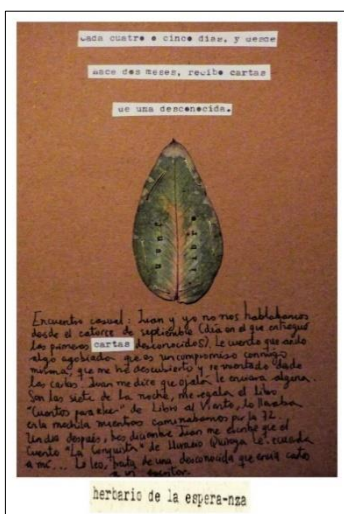 Cada cuatro o cinco días, y desde
hace dos meses, recibo cartas
de una desconocida.
Encuentro casual: Juan y yo no nos hablabamos
desde el catorce de septiembre (día en el que entregué
las primeras cartas a desconocidos). Le cuento que ando
algo agobiada que es un compromiso conmigo
misma que me ha descubierto y remontado dado
las cartas. Juan me dice que ojalá le enviara alguna.
Son las siete de la noche, me regala el libro
"Cuentos para elec" de Libro al Viento, lo llevaba
en la maleta mientras caminabamos por la 72.
Un día después, hoy, diciembre Juan me escribe que el
cuento "La Conquista" de Horacio Quiroga le recuerda
a mí... Lo leo, trata de una desconocida que envía cartas
a un escritor.
herbario de la espera-nza